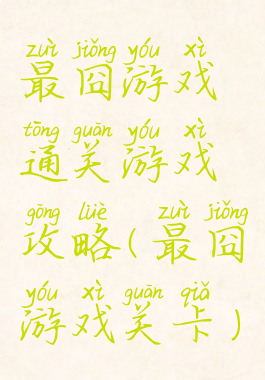 zuì jiǒng yóu xì
最囧游戏
tōng guān yóu xì
通关游戏
gōng lüè zuì jiǒng
攻略(最囧
yóu xì guān qiǎ
游戏关卡)